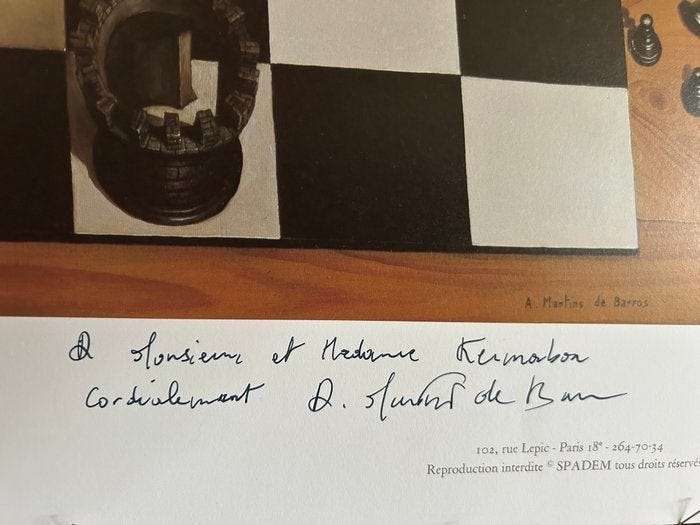 A. Martins de Barros
A Monsieur et Madame Kermorban
Cordialement A. Martins de Barros
102, rue Lepic - Paris 18e - 264-70-34
Reproduction interdite © SPADEM tous droits réservés